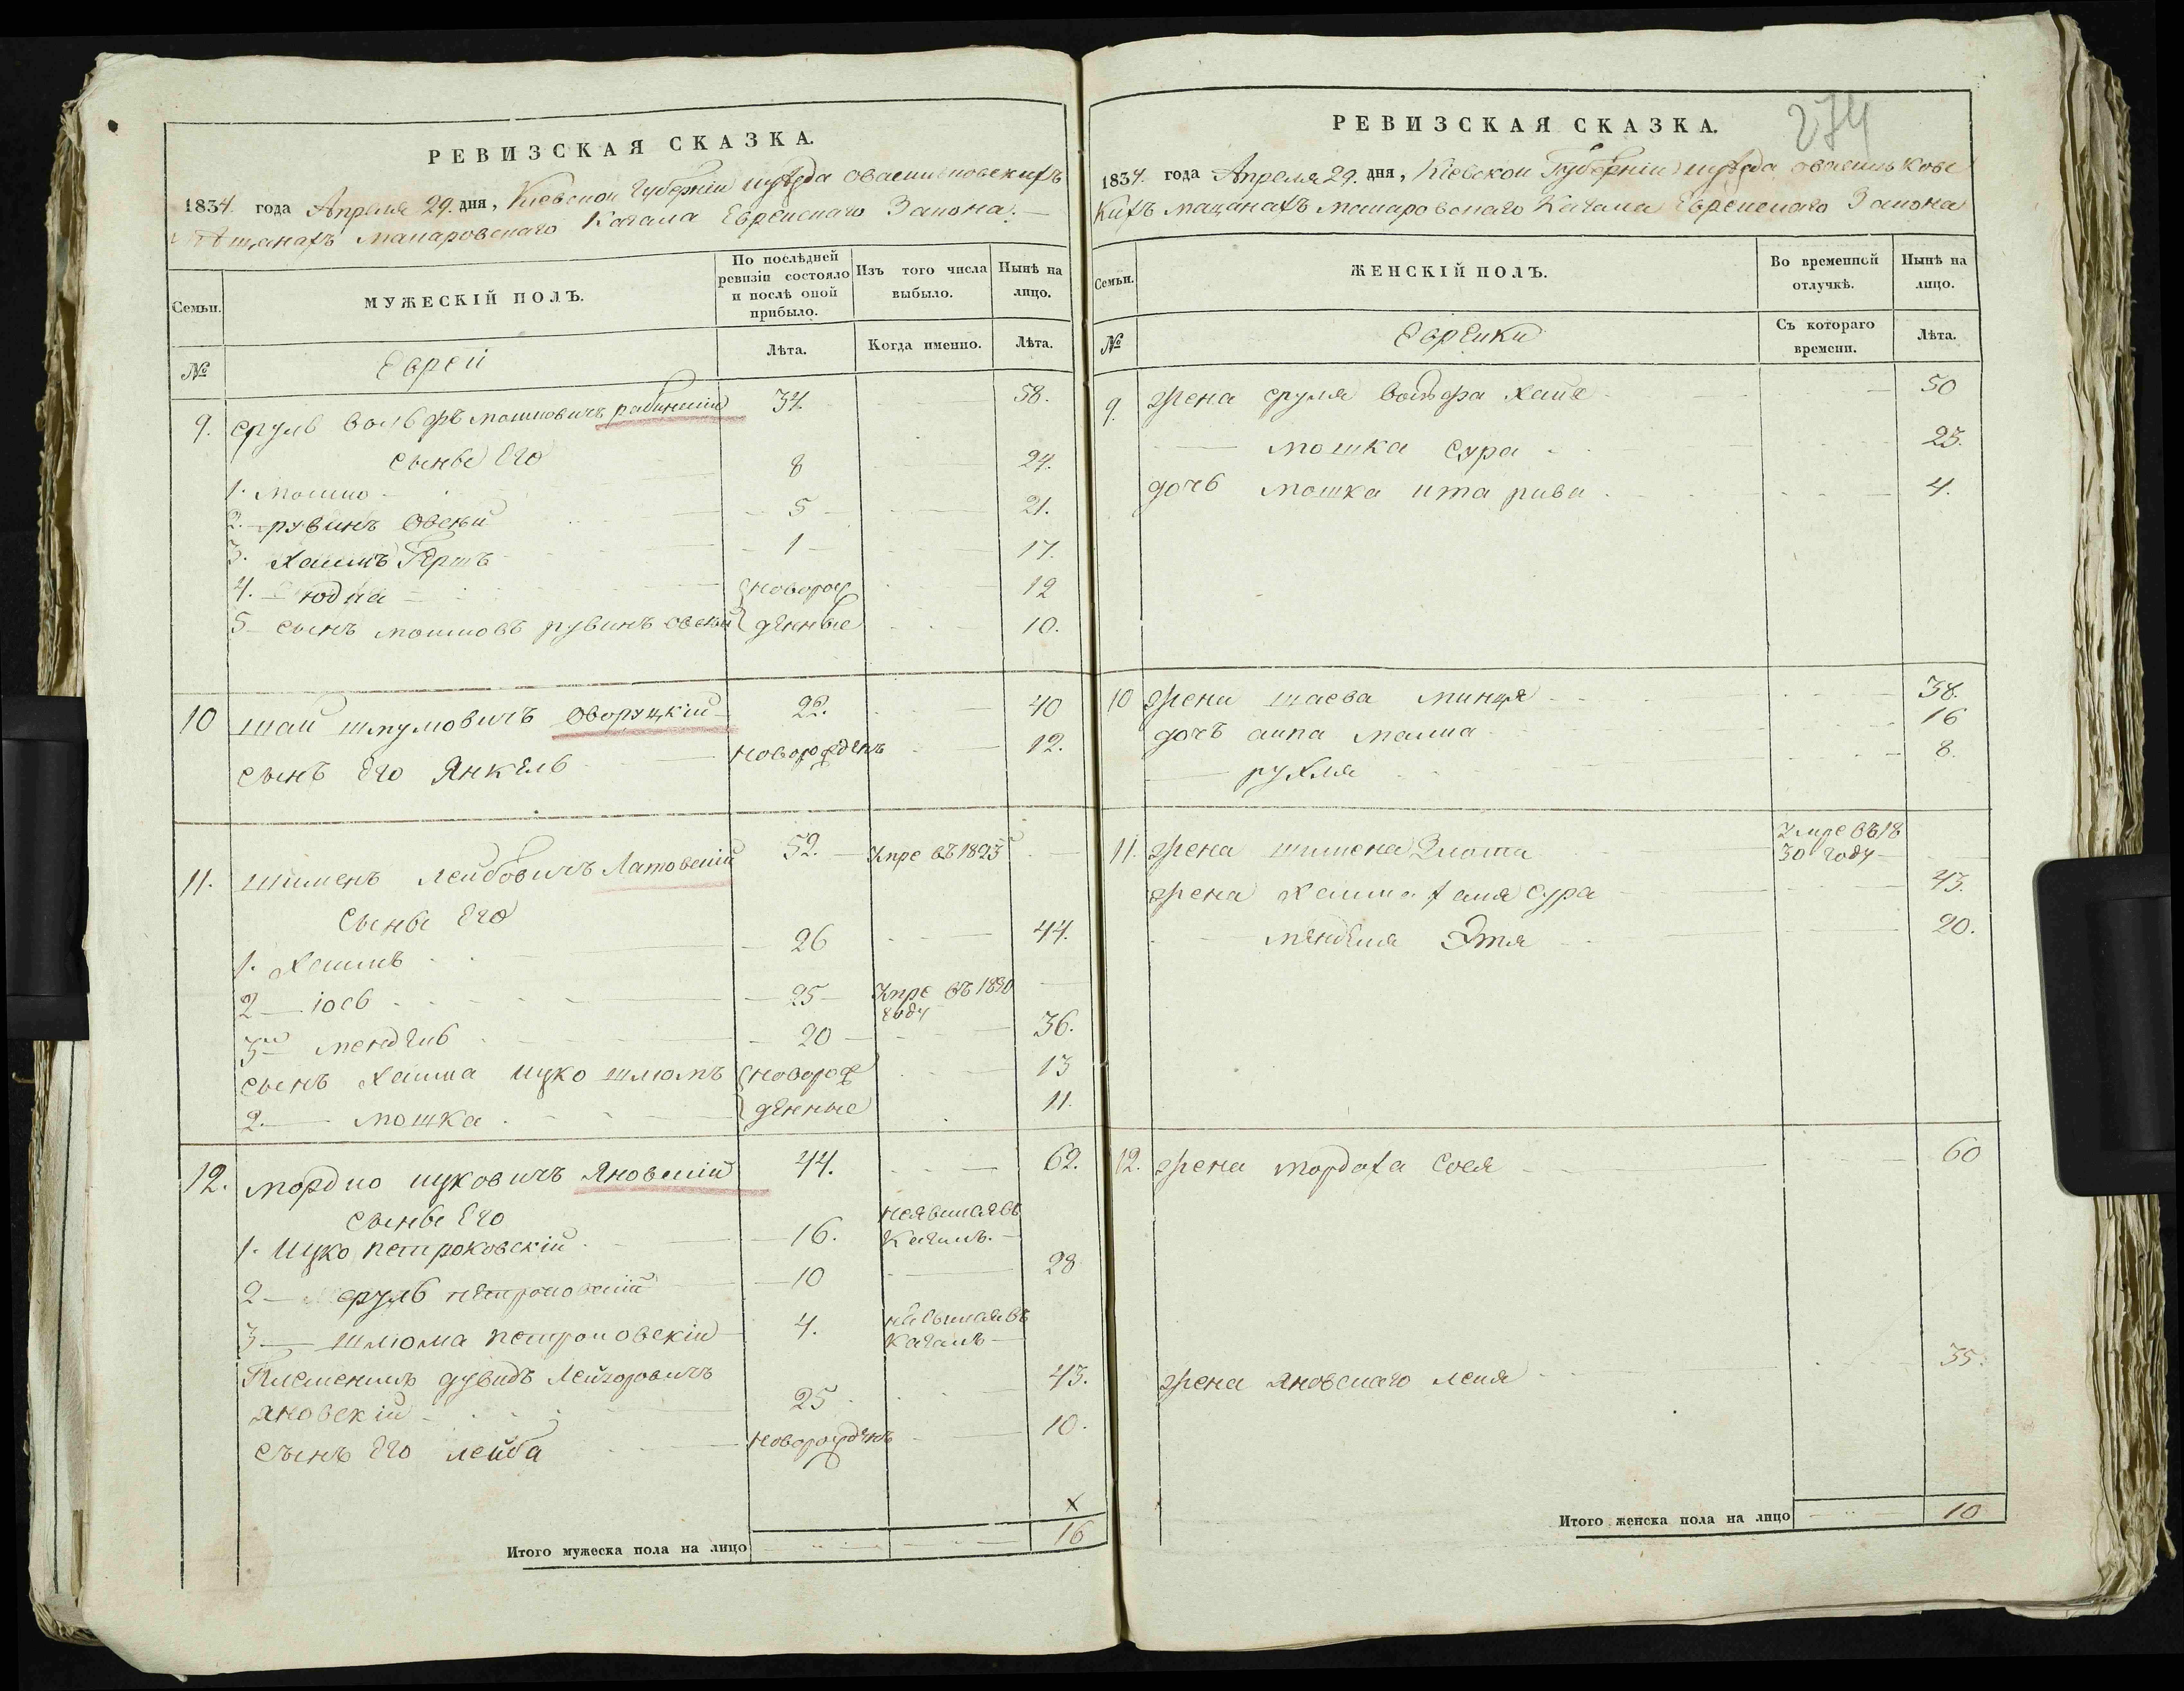 РЕВИЗСКАЯ СКАЗКА.
1834. года Апреля 29. дня, Кіевской Губерніи уѣзда оваситковскихъ
Мещанахъ Макаровскаго Кагала Еврейскаго Закона.
Семьи.
МУЖЕСКІЙ ПОЛЪ.
По послѣдней ревизіи состояло и послѣ оной прибыло.
Изъ того числа выбыло.
Нынѣ на лицо.
№
Еврей
Лѣта.
Когда именно.
Лѣта.
9. Сруль Вольфъ Мошковичъ 34. 58.
Сыновьи Его
1. Мошко 8 24.
2. рувинъ Овсъй 5 21.
3. Хаимъ Гершъ 1 17.
4. Юдка новорож 12
5 сынъ мошковъ рувинъ овсъй денные 10.
10 Шаи Шмулов​ичъ Оворуцкій 22. 40
сынъ Его Янкель новорожденъ 12.
11. Шименъ Лейбовичъ Латовскій 52. Умре въ 1823
Сыновьи Его
1. Хаимъ 26 44.
2 іось 25 Умре въ 1830
году
3й мендель 20 36.
сынъ Хаима Ицко шлюмъ новорож 13
2. мошка денные 11.
12. Мордко ицковичъ Яновскій 44. 62.
Сыновьи Его
1. Ицко петроковскій 16. неявился въ
Кагалъ.
2 сруль петроковскій 10 28
3 шлюма петроковскій 4. неявился въ
Кагалъ
Племенникъ дувидъ
яновскій 25 43.
Сынъ Его лейба новорожденъ 10.
х
Итого мужеска пола на лицо 16
274
РЕВИЗСКАЯ СКАЗКА.
1834. года Апреля 29. дня, Кіевской Губерніи уѣзда овасильковс
Кихъ мащанахъ макаровскаго Кагала Еврейскаго Закона
Семьи.
ЖЕНСКІЙ ПОЛЪ.
Во временной отлучкѣ.
Нынѣ на лицо.
№
Еврейки
Съ котораго времени.
Лѣта.
9. жена сруля Вольфа Хайя 50
мошка Сура 23.
дочь мошка ита рива 4.
10 жена шаева минця 38.
дочь малка 16
рухля 8.
11. жена шимена Злота Умре въ 18
30 году
жена Хаима Сура 43.
менделя Этя 20.
12. жена мордоха Сося 60
жена яновскаго лея 35.
Итого женска пола на лицо 10